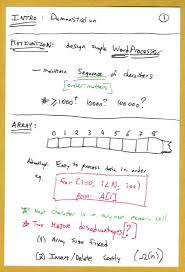 INTRO: Demonstration
1
MOTIVATION: design simple WordProcessor
- maintain Sequence of characters
[order matters]
# ≥ 1000? 10000? 100000?
ARRAY:
0 1 2 3 4 5 6 7 8
Advantage: Easy to process data in order
eg.
for (i=0; i<N; i++)
print A[i]
* Next character is in very next memory cell
* Two MAJOR disadvantages [?]
(1) Array size fixed
(2) Insert/Delete Costly (Ω(n))